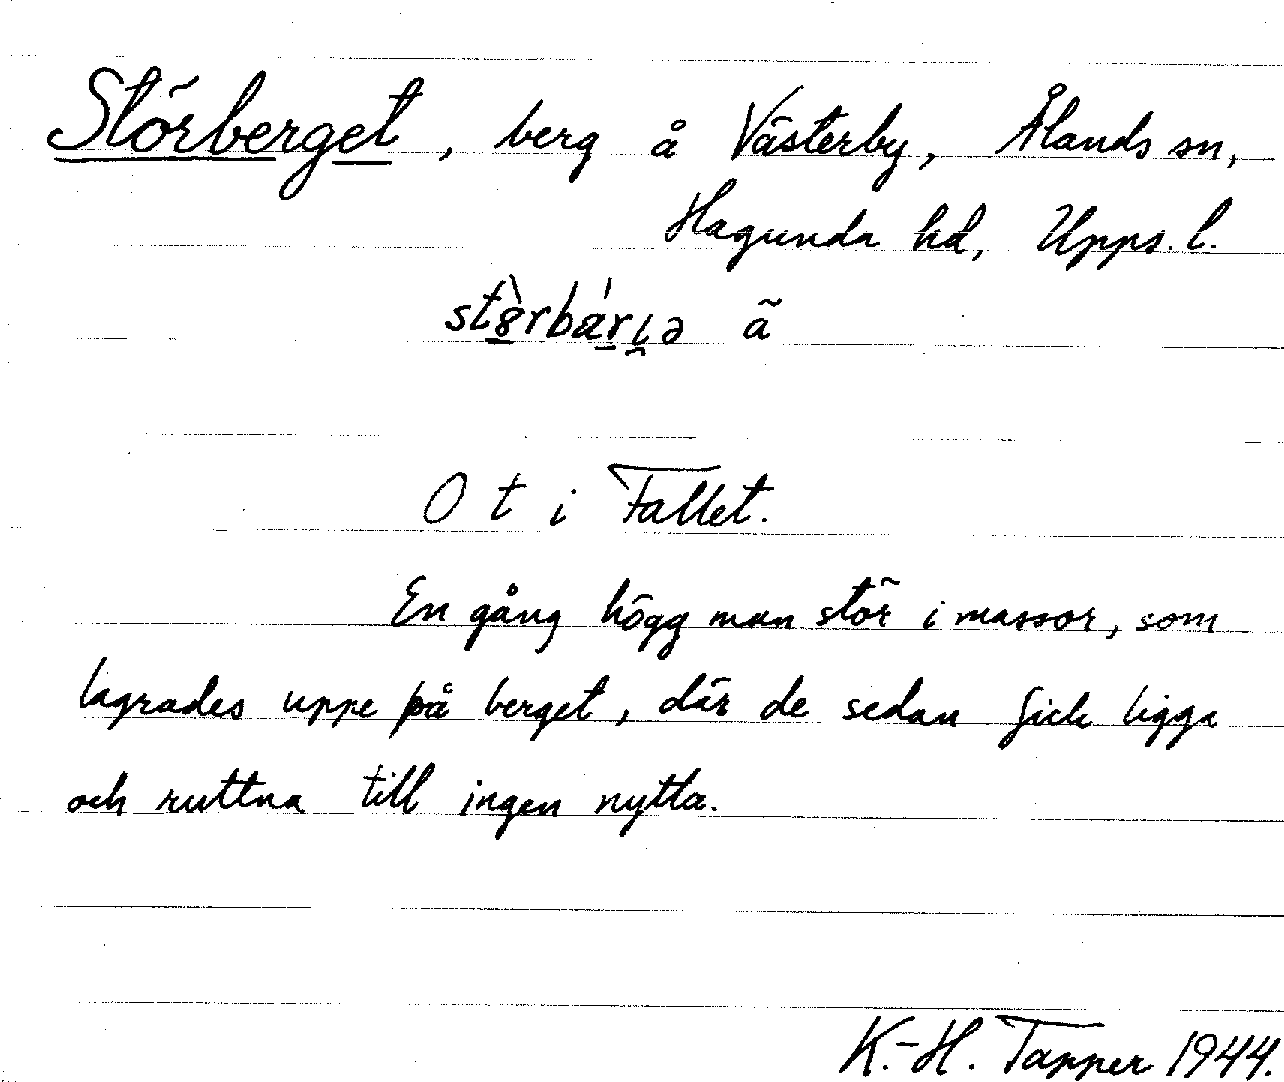 Störberget, berg å Västerby, Ålands sn,
Hagunda hd, Upps. l.
å̃
O t i Fallet.
En gång högg man stör i massor, som
lagrades uppe på berget, där de sedan fick ligga
och ruttna till ingen nytta.
K.-H. Tapper 1944.